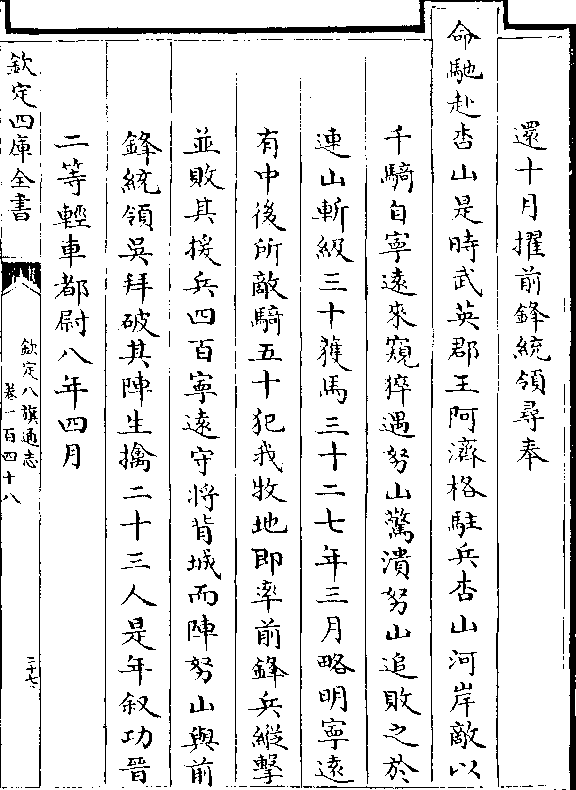 還十月擢前鋒統領尋奉
命馳赴杏山是時武英郡王阿濟格駐兵杏山河岸敵以
千騎自寧遠來窺猝遇努山驚潰努山追敗之於
連山斬級三十獲馬三十二七年三月略明寧遠
有中後所敵騎五十犯我牧地即率前鋒兵縱擊
並敗其援兵四百寧遠守將背城而陣努山與前
鋒統領吳拜破其陣生擒二十三人是年叙功晉
二等輕車都尉八年四月
欽定四庫全書
欽定八旗通志
卷一百四十八
三十七